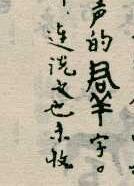 声的羣字。
连说文也未收